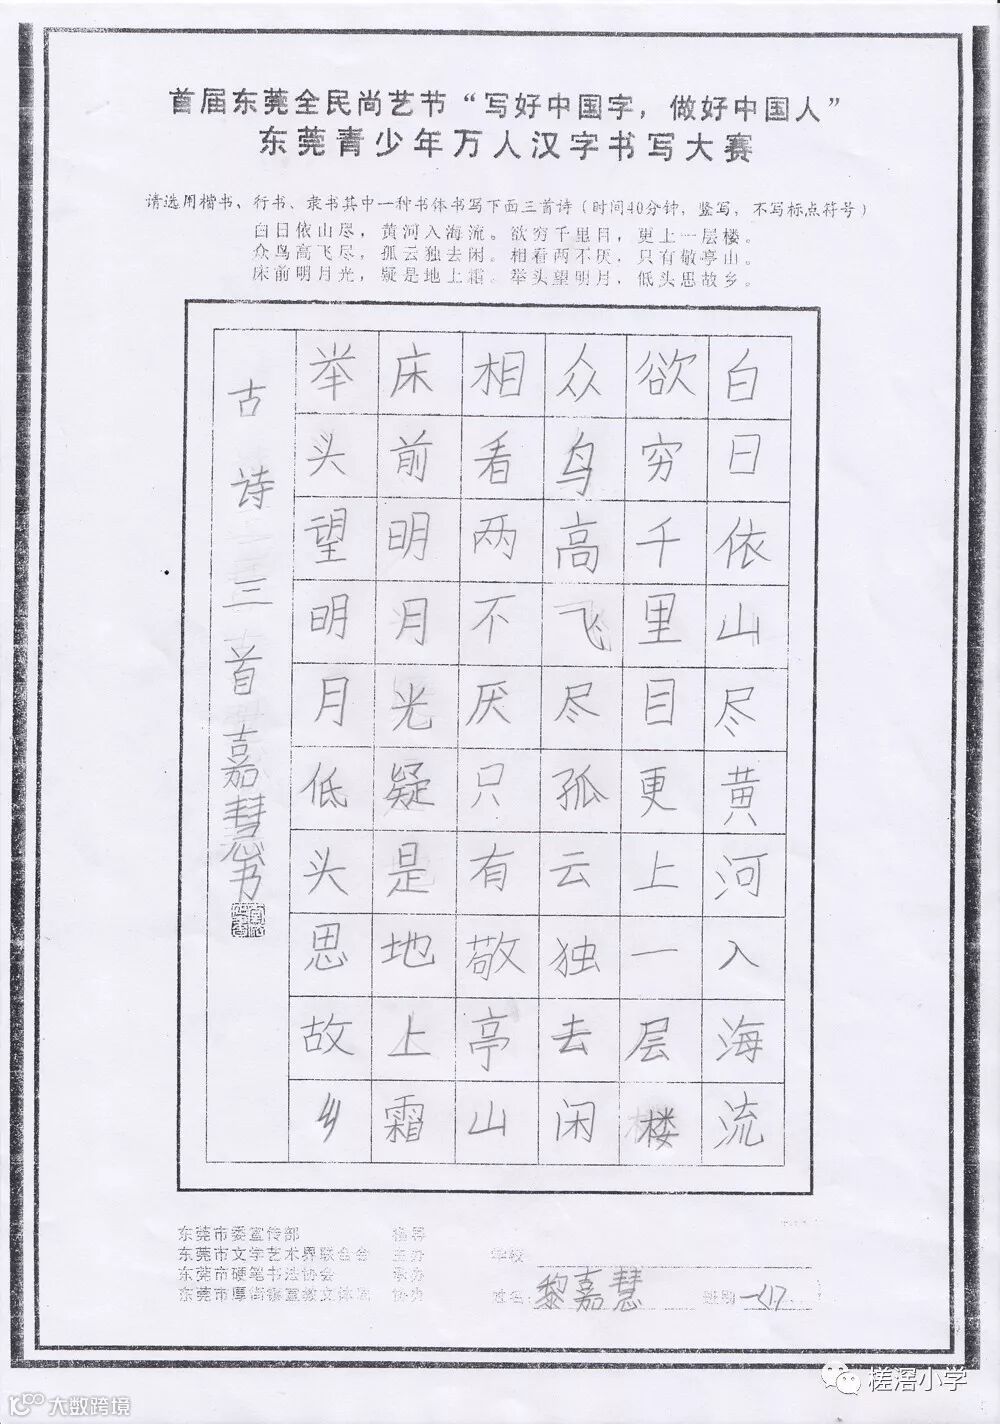 首届东莞全民尚艺节“写好中国字，做好中国人”
东莞青少年万人汉字书写大赛
请选用楷书、行书、隶书其中一种书体书写下面三首诗（时间40分钟，竖写，不写标点符号）
白日依山尽，黄河入海流。欲穷千里目，更上一层楼。
众鸟高飞尽，孤云独去闲。相看两不厌，只有敬亭山。
床前明月光，疑是地上霜。举头望明月，低头思故乡。
白日依山尽黄河入海流
欲穷千里目更上一层楼
众鸟高飞尽孤云独去闲
相看两不厌只有敬亭山
床前明月光疑是地上霜
举头望明月低头思故乡
古诗三首嘉慧书
东莞市委宣传部
东莞市文学艺术界联合会 主办
东莞市硬笔书法协会 承办
东莞市厚街镇宣教文体局 协办
学校
姓名：黎嘉慧 班别
槎滘小学
大数跨境